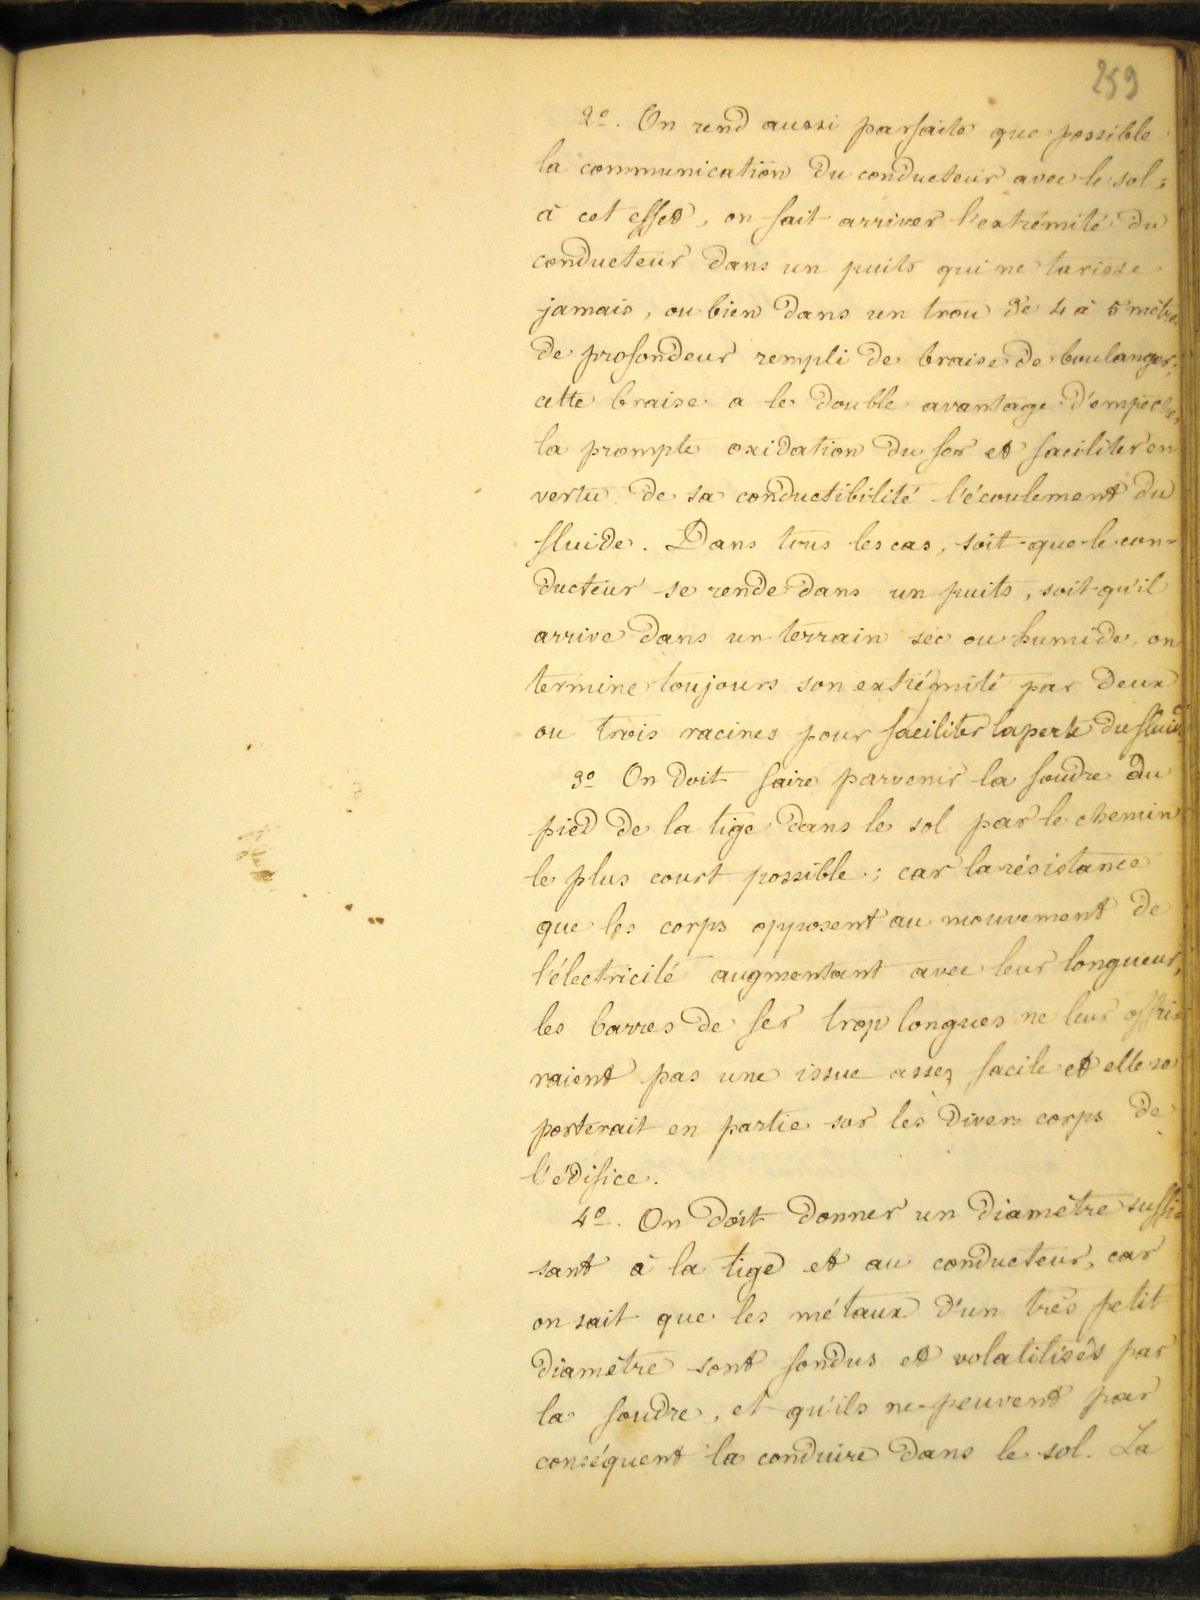 259
2º. On rend aussi parfaite que possible
la communication du conducteur avec le sol;
à cet effet, on fait arriver l'extrémité du
conducteur dans un puits qui ne tarisse
jamais, ou bien dans un trou de 4 à 5 mètre
de profondeur rempli de braise de boulanger;
cette braise a le double avantage d'empêcher
la prompte oxidation du fer et faciliter en
vertu de sa conductibilité l'écoulement du
fluide. Dans tous les cas, soit que le con-
ducteur se rende dans un puits, soit qu'il
arrive dans un terrain sec ou humide, on
termine toujours son extrémité par deux
ou trois racines pour faciliter la perte du fluide
3º On doit faire parvenir la foudre du
pied de la tige dans le sol par le chemin
le plus court possible; car la résistance
que les corps opposent au mouvement de
l'électricité augmentant avec leur longueur,
les barres de fer trop longues ne leur offri-
raient pas une issue assez facile et elle se
porterait en partie sur les divers corps de
l'édifice.
4º. On doit donner un diamètre suffi-
sant à la tige et au conducteur, car
on sait que les métaux d'un très petit
diamètre sont fondus et volatilisés par
la foudre, et qu'ils ne peuvent par
conséquent la conduire dans le sol. La